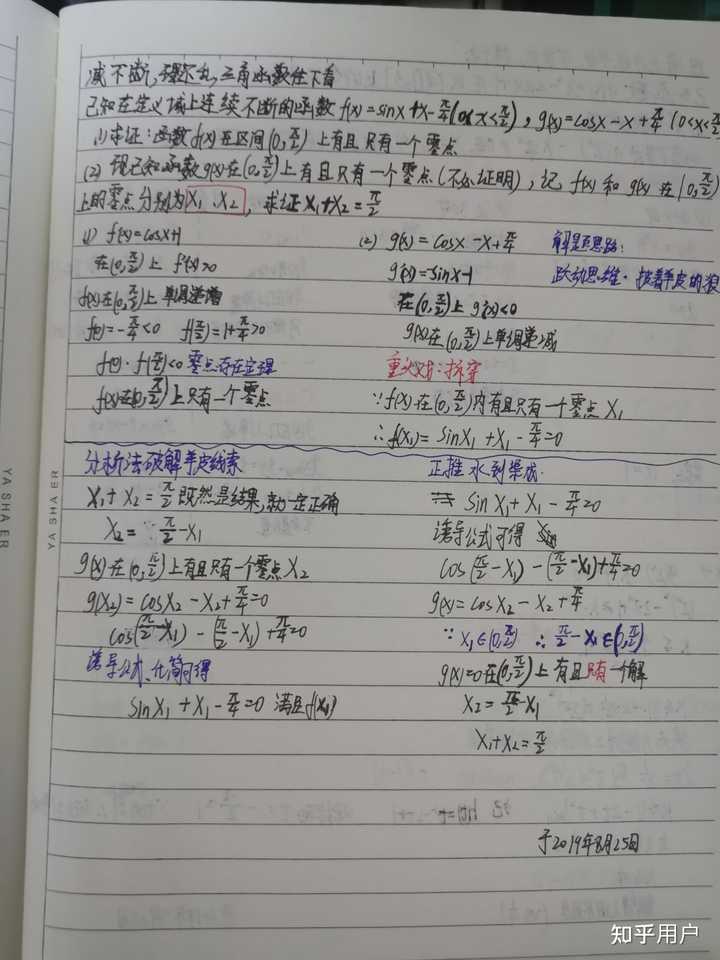 减不断,理不乱,三角函数往下看
已知在定义域上连续不断的函数 f(x)=sinx+x-π/4(0<x<π/2), g(x)=cosx-x+π/4 (0<x<π/2)
(1)求证:函数f(x)在区间(0,π/2)上有且只有一个零点
(2)现已知函数g(x)在(0,π/2)上有且只有一个零点(不必证明),记 f(x)和g(x)在(0,π/2)
上的零点分别为X₁、X₂,求证X₁+X₂=π/2
(1) f'(x)=cosx+1
在(0,π/2)上 f'(x)>0
f(x)在(0,π/2)上 单调递增
f(0)=-π/4<0 f(π/2)=1+π/4>0
f(0)·f(π/2)<0 零点存在定理
f(x)在(0,π/2)上只有一个零点
(2) g(x)=cosx-x+π/4 解题思路:
g'(x)=-sinx-1 跃动思维·披着羊皮的狼
在(0,π/2)上 g'(x)<0
g(x)在(0,π/2)上单调递减
拆穿
∵f(x)在(0,π/2)内有且只有一个零点X₁
∴f(x₁)=sinX₁+X₁-π/4=0
分析法破解羊皮线索
X₁+X₂=π/2既然是结果,就一定正确
X₂=π/2-X₁
g(x)在(0,π/2)上有且只有一个零点X₂
g(x₂)=cosX₂-X₂+π/4=0
cos(π/2-X₁)-(π/2-X₁)+π/4=0
诱导公式、化简可得
sinX₁+X₁-π/4=0 满足f(x₁)
正推水到渠成
sinX₁+X₁-π/4=0
诱导公式可得
cos(π/2-X₁)-(π/2-X₁)+π/4=0
g(x)=cosX₂-X₂+π/4
∵X₁∈(0,π/2) ∴π/2-X₁∈(0,π/2)
g(x)=0在(0,π/2)上有且只有一个解
X₂=π/2-X₁
X₁+X₂=π/2
于2019年8月25日
YA SHA ER
YA SHA ER
知乎用户